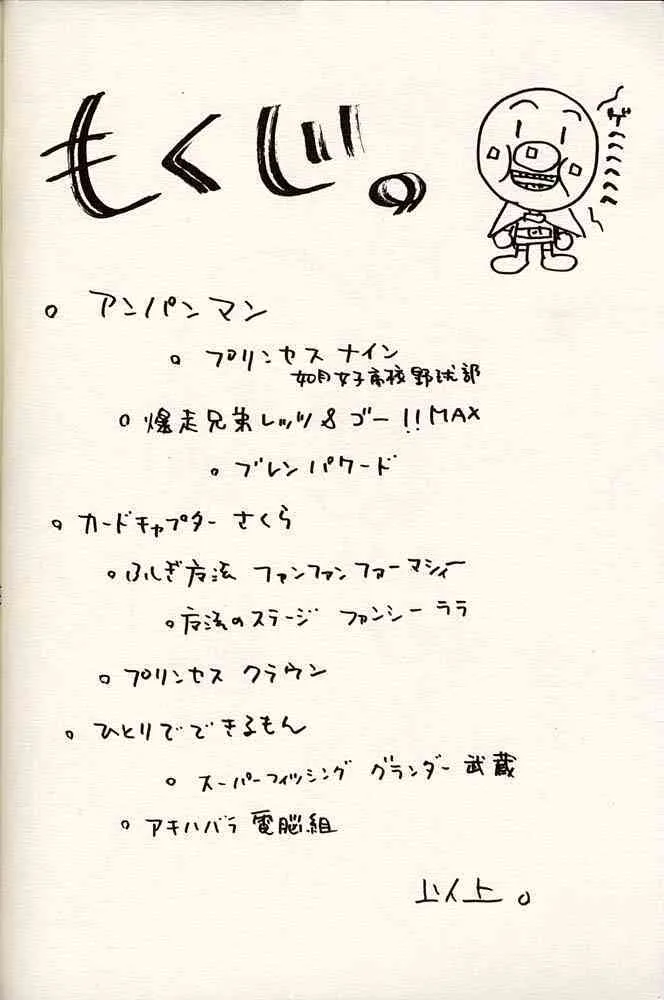 もくじ。
ゲヘヘヘヘヘ
アンパンマン
プリンセス ナイン
如月女子高校野球部
爆走兄弟レッツ&ゴー!!MAX
ブレンパワード
カードキャプター さくら
ふしぎ魔法 ファンファンファーマシィー
魔法のステージ ファンシーララ
プリンセス クラウン
ひとりでできるもん
スーパーフィッシング グランダー武蔵
アキハバラ電脳組
以上。